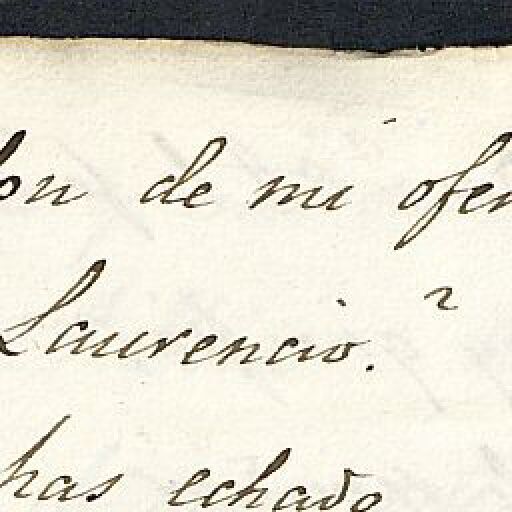 de mi ofen
Laurencio.
has echado